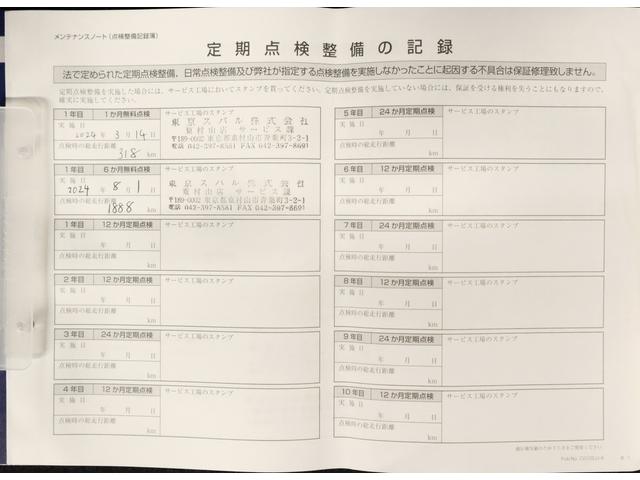 メンテナンスノート(点検整備記録簿)
定期点検整備の記録
法で定められた定期点検整備、日常点検整備及び弊社が指定する点検整備を実施しなかったことに起因する不具合は保証修理致しません。
定期点検整備を実施した場合には、サービス工場においてスタンプを貰ってください。定期点検整備を実施していない場合には、保証を受ける権利を失うことにもなりますので、
確実に実施してください。
1年目 1か月無料点検 サービス工場のスタンプ
実施日
2024年 3月 14日
点検時の総走行距離
318 km
東京スバル株式会社
東村山店 サービス課
〒189-0002 東京都東村山市青葉町3-2-1
電話 042-397-8581 FAX 042-397-8691
1年目 6か月無料点検 サービス工場のスタンプ
実施日
2024年 8月 1日
点検時の総走行距離
1888 km
東京スバル株式会社
東村山店 サービス課
〒189-0002 東京都東村山市青葉町3-2-1
電話 042-397-8581 FAX 042-397-8691
1年目 12か月定期点検 サービス工場のスタンプ
実施日
年 月 日
点検時の総走行距離
km
2年目 12か月定期点検 サービス工場のスタンプ
実施日
年 月 日
点検時の総走行距離
km
3年目 24か月定期点検 サービス工場のスタンプ
実施日
年 月 日
点検時の総走行距離
km
4年目 12か月定期点検 サービス工場のスタンプ
実施日
年 月 日
点検時の総走行距離
km
5年目 24か月定期点検 サービス工場のスタンプ
実施日
年 月 日
点検時の総走行距離
km
6年目 12か月定期点検 サービス工場のスタンプ
実施日
年 月 日
点検時の総走行距離
km
7年目 24か月定期点検 サービス工場のスタンプ
実施日
年 月 日
点検時の総走行距離
km
8年目 12か月定期点検 サービス工場のスタンプ
実施日
年 月 日
点検時の総走行距離
km
9年目 24か月定期点検 サービス工場のスタンプ
実施日
年 月 日
点検時の総走行距離
km
10年目 12か月定期点検 サービス工場のスタンプ
実施日
年 月 日
点検時の総走行距離
km